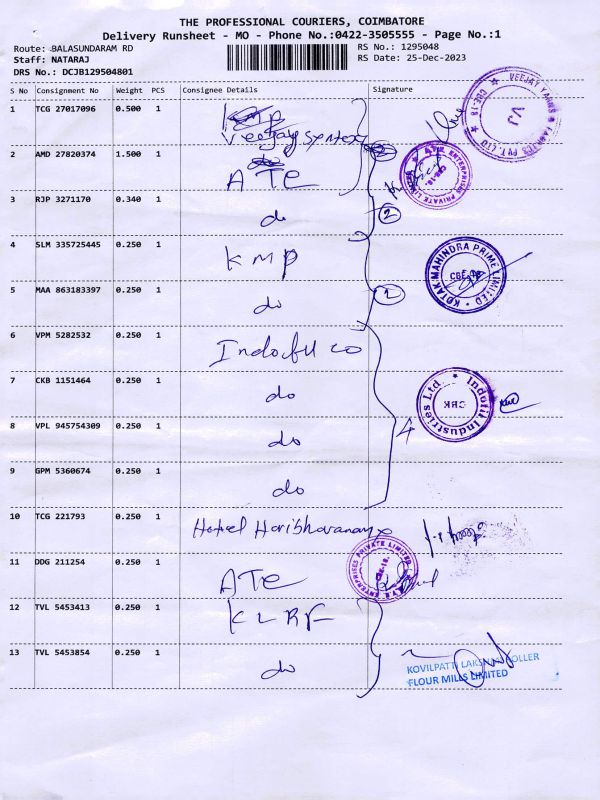 THE PROFESSIONAL COURIERS, COIMBATORE
Delivery Runsheet - MO - Phone No.:0422-3505555 - Page No.:1
Route: BALASUNDARAM RD
RS No.: 1295048
Staff: NATARAJ
RS Date: 25-Dec-2023
DRS No.: DCJB129504801
S No Consignment No Weight PCS Consignee Details Signature
1 TCG 27017096 0.500 1 Veejay syntex
VEEJAY YARNS & FABRICS PVT. LTD CBE-18 VJ
2 AMD 27820374 1.500 1 ATE
ATE ENTERPRISES PRIVATE LIMITED CBE-18
3 RJP 3271170 0.340 1 do 2
4 SLM 335725445 0.250 1 KMP
KOTAK MAHINDRA PRIME LIMITED CBE-18
5 MAA 863183397 0.250 1 do
6 VPM 5282532 0.250 1 Indofil co
7 CKB 1151464 0.250 1 do
Indofil Industries Ltd CBK
8 VPL 945754309 0.250 1 do 4
9 GPM 5360674 0.250 1 do
10 TCG 221793 0.250 1 Hotel Haribhavanam
11 DDG 211254 0.250 1 ATE
ATE ENTERPRISES PRIVATE LIMITED CBE-18
12 TVL 5453413 0.250 1 KLRF
13 TVL 5453854 0.250 1 do
KOVILPATTI ROLLER
FLOUR MILLS LIMITED